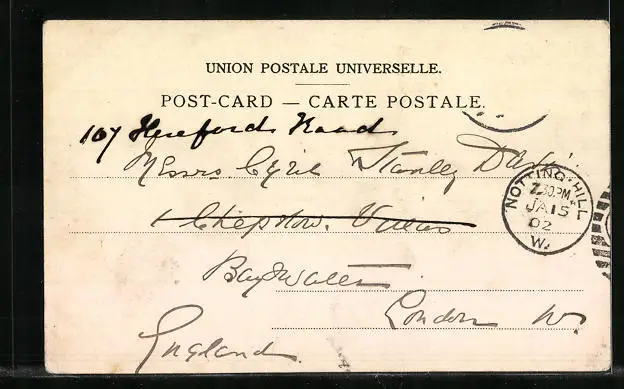 UNION POSTALE UNIVERSELLE.
POST-CARD — CARTE POSTALE.
107 Hereford Road
Messrs Cyril Stanley Davis
1 Chepstow. Villas
Bayswater
London W.
England.
NOTTING-HILL
7.30PM
JA15
02
W.